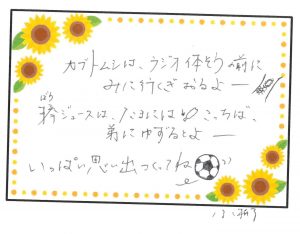 カブトムシは、ラジオ体そうの前に
みに行くぎおるよー
ぼう
棒ジュースは、たまには こっちば、
弟にゆずるとよー
いっぱい思い出つくってね